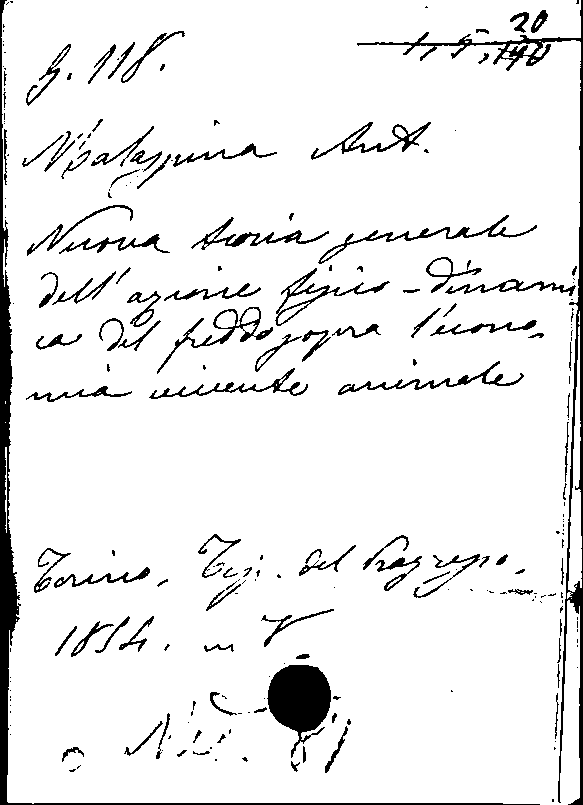 20
G. 118.
1, 5, 140
Malaspina Ant.
Nuova teoria generale
dell'azione fisico-dinami
ca del freddo sopra l'econo-
mia vivente animale
Torino, Tip. del Progresso,
1854. in 8